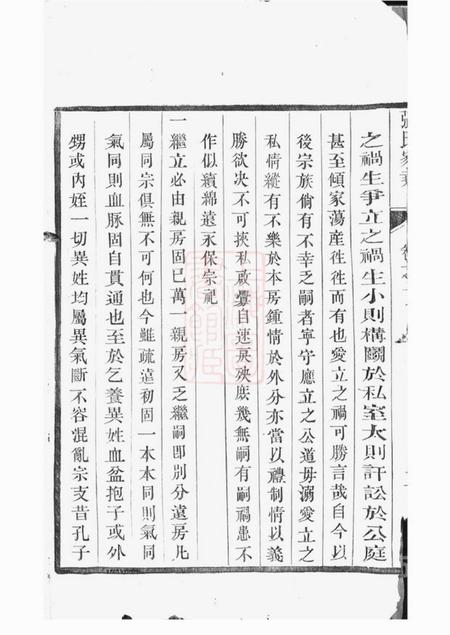 之禍生爭立之禍生小則構鬩於私室大則訐訟於公庭
甚至傾家蕩產徃徃而有也愛立之禍可勝言哉自今以
後宗族倘有不幸乏嗣者寧守應立之公道毋溺愛立之
私情縱有不樂於本房鍾情於外分亦當以禮制情以義
勝欲决不可挾私啟釁自速戾殃庶幾無嗣有嗣禍患不
作似續綿遠永保宗祀
一繼立必由親房固已萬一親房又乏繼嗣卽別分遠房凡
屬同宗俱無不可何也今雖疏遠初固一本本同則氣同
氣同則血脉固自貫通也至於乞養異姓血盆抱子或外
甥或內姪一切異姓均屬異氣斷不容混亂宗支昔孔子